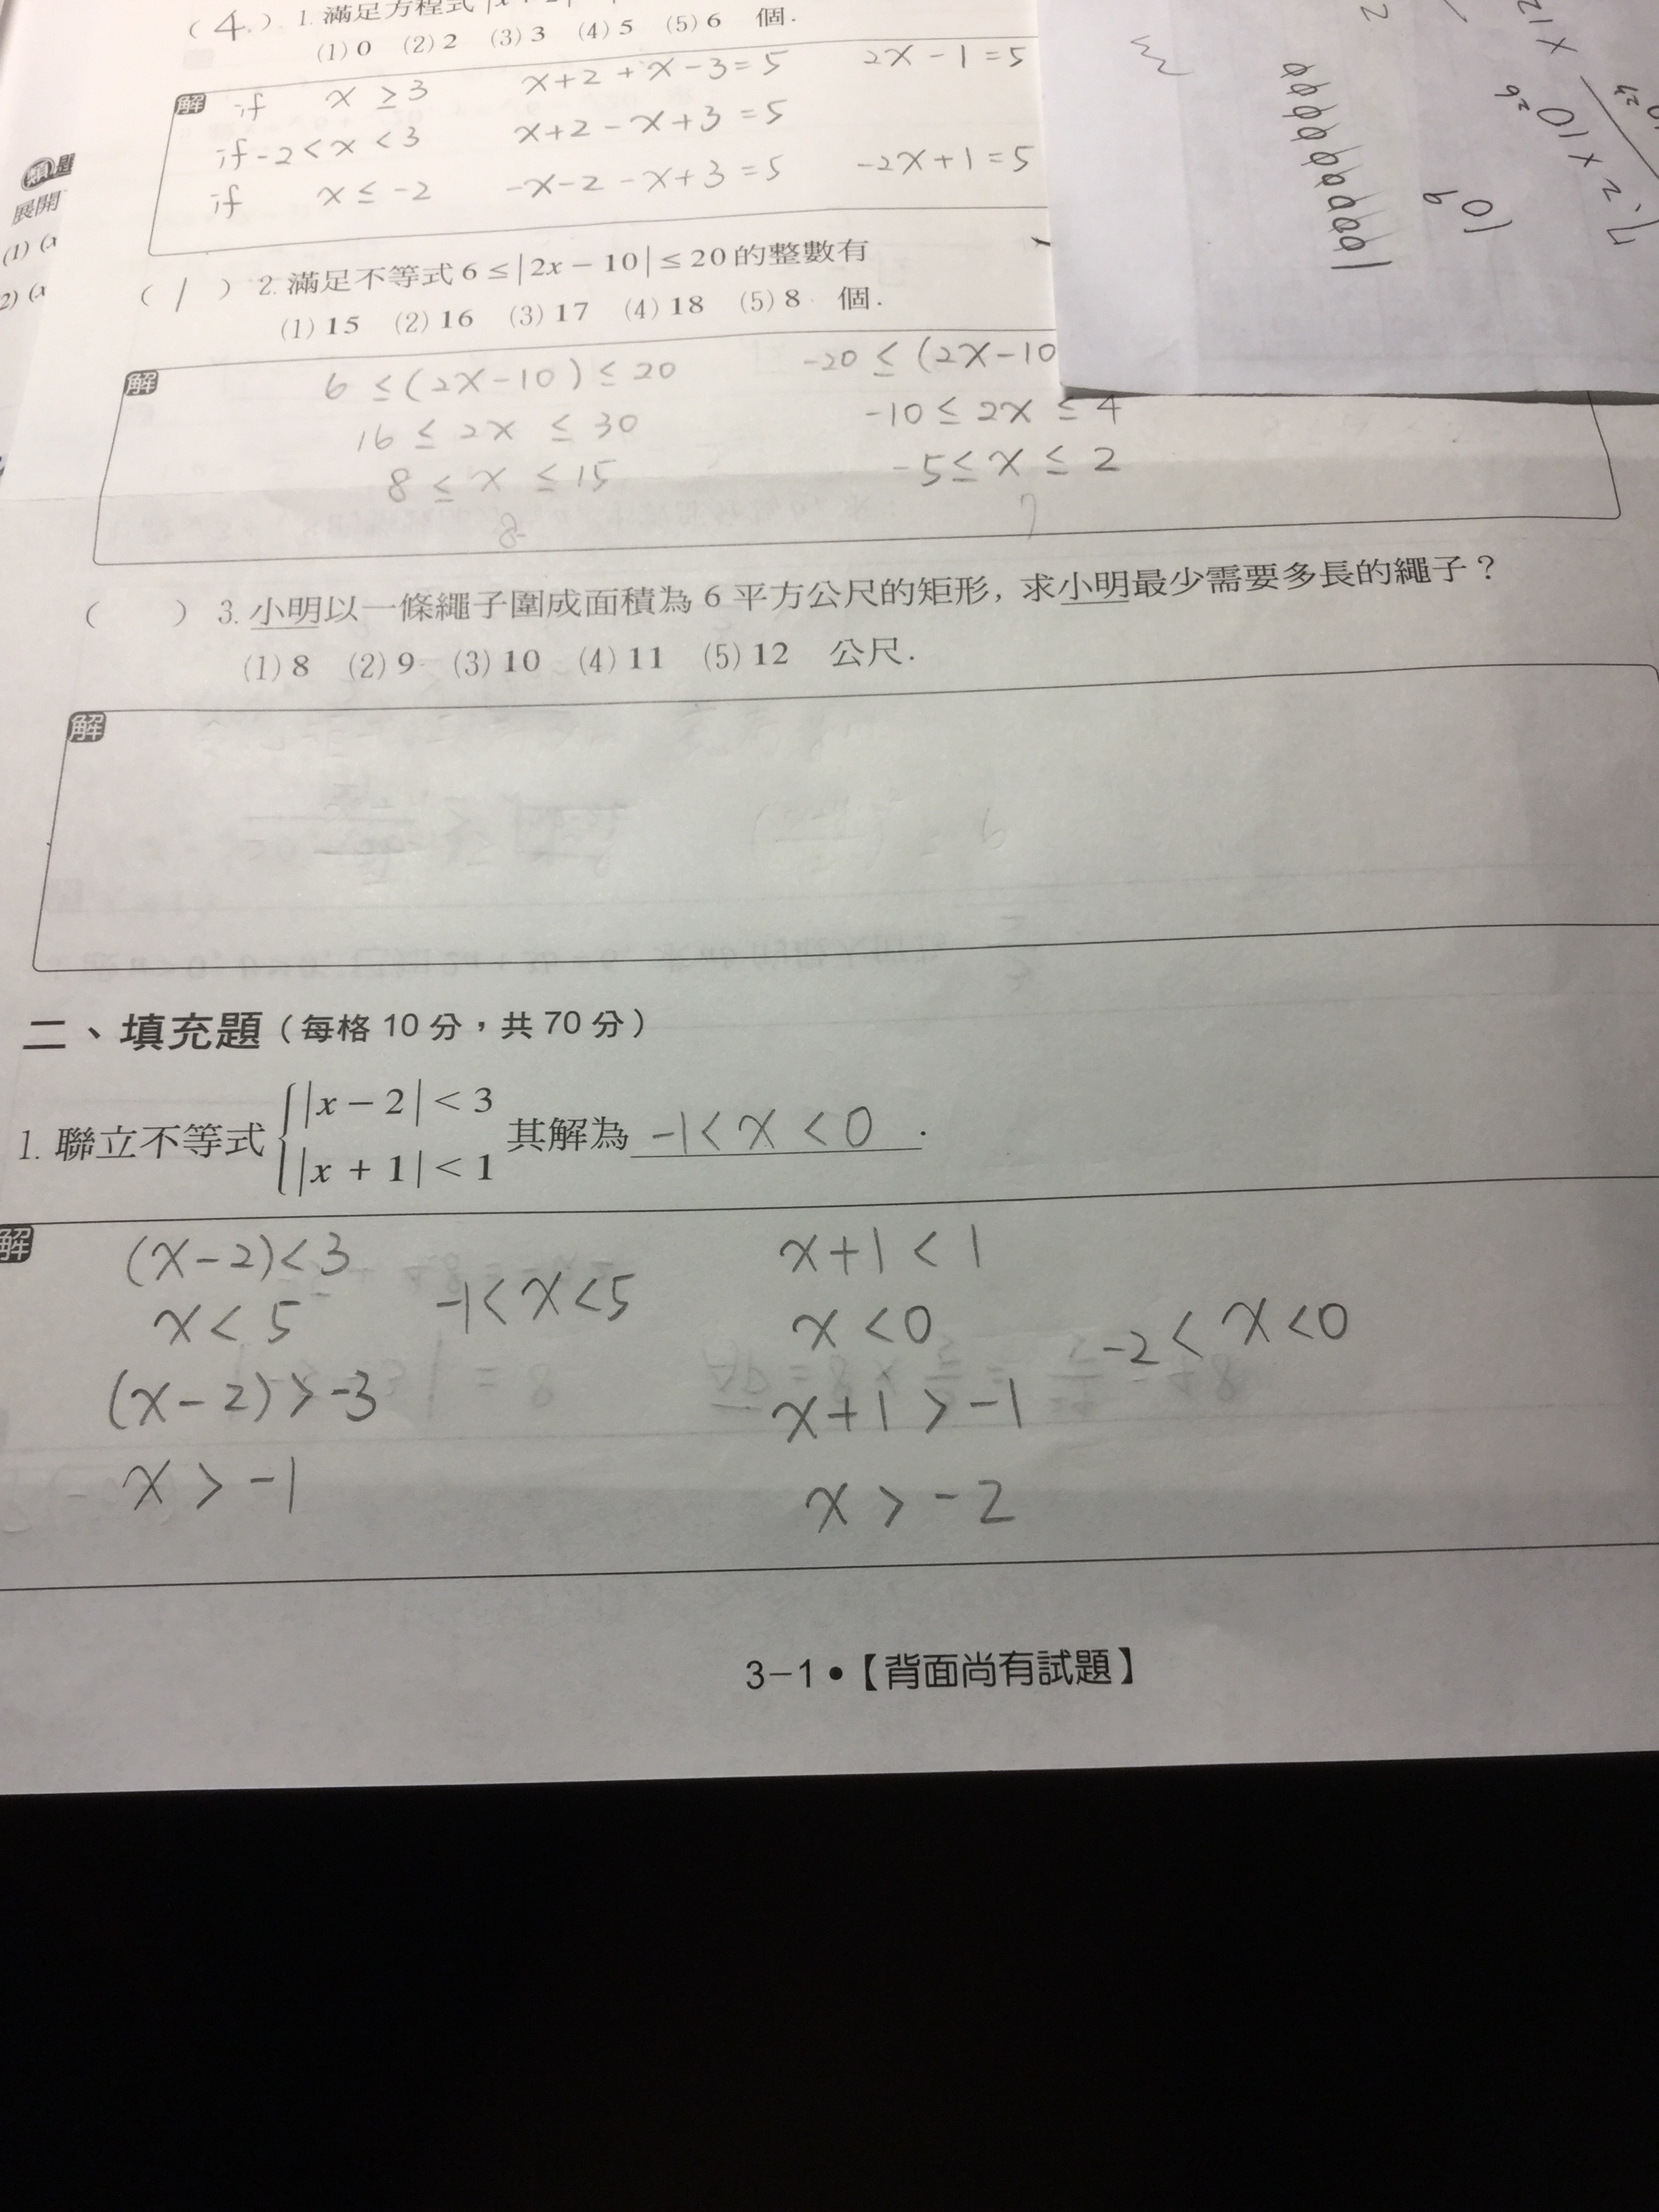 (4) 1. 滿足方程式
(1) 0 (2) 2 (3) 3 (4) 5 (5) 6 個.
解 if x ≥ 3 x+2+x-3=5 2x-1=5
if -2<x<3 x+2-x+3=5
if x ≤ -2 -x-2-x+3=5 -2x+1=5
類題
展開
(1)
2)
(1) 2. 滿足不等式 6 ≤ |2x − 10| ≤ 20 的整數有
(1) 15 (2) 16 (3) 17 (4) 18 (5) 8 個.
解 6 ≤ (2x-10) ≤ 20 -20 ≤ (2x-10
16 ≤ 2x ≤ 30 -10 ≤ 2x ≤ 4
8 ≤ x ≤ 15 -5 ≤ x ≤ 2
8
( ) 3. 小明以一條繩子圍成面積為 6 平方公尺的矩形, 求小明最少需要多長的繩子?
(1) 8 (2) 9 (3) 10 (4) 11 (5) 12 公尺.
解
二、填充題(每格 10 分,共 70 分)
1. 聯立不等式 { |x − 2| < 3 其解為 -1<x<0 .
|x + 1| < 1
解 (x-2)<3 x+1<1
x<5 -1<x<5 x<0 -2<x<0
(x-2)>-3 x+1>-1
x>-1 x>-2
3-1•【背面尚有試題】